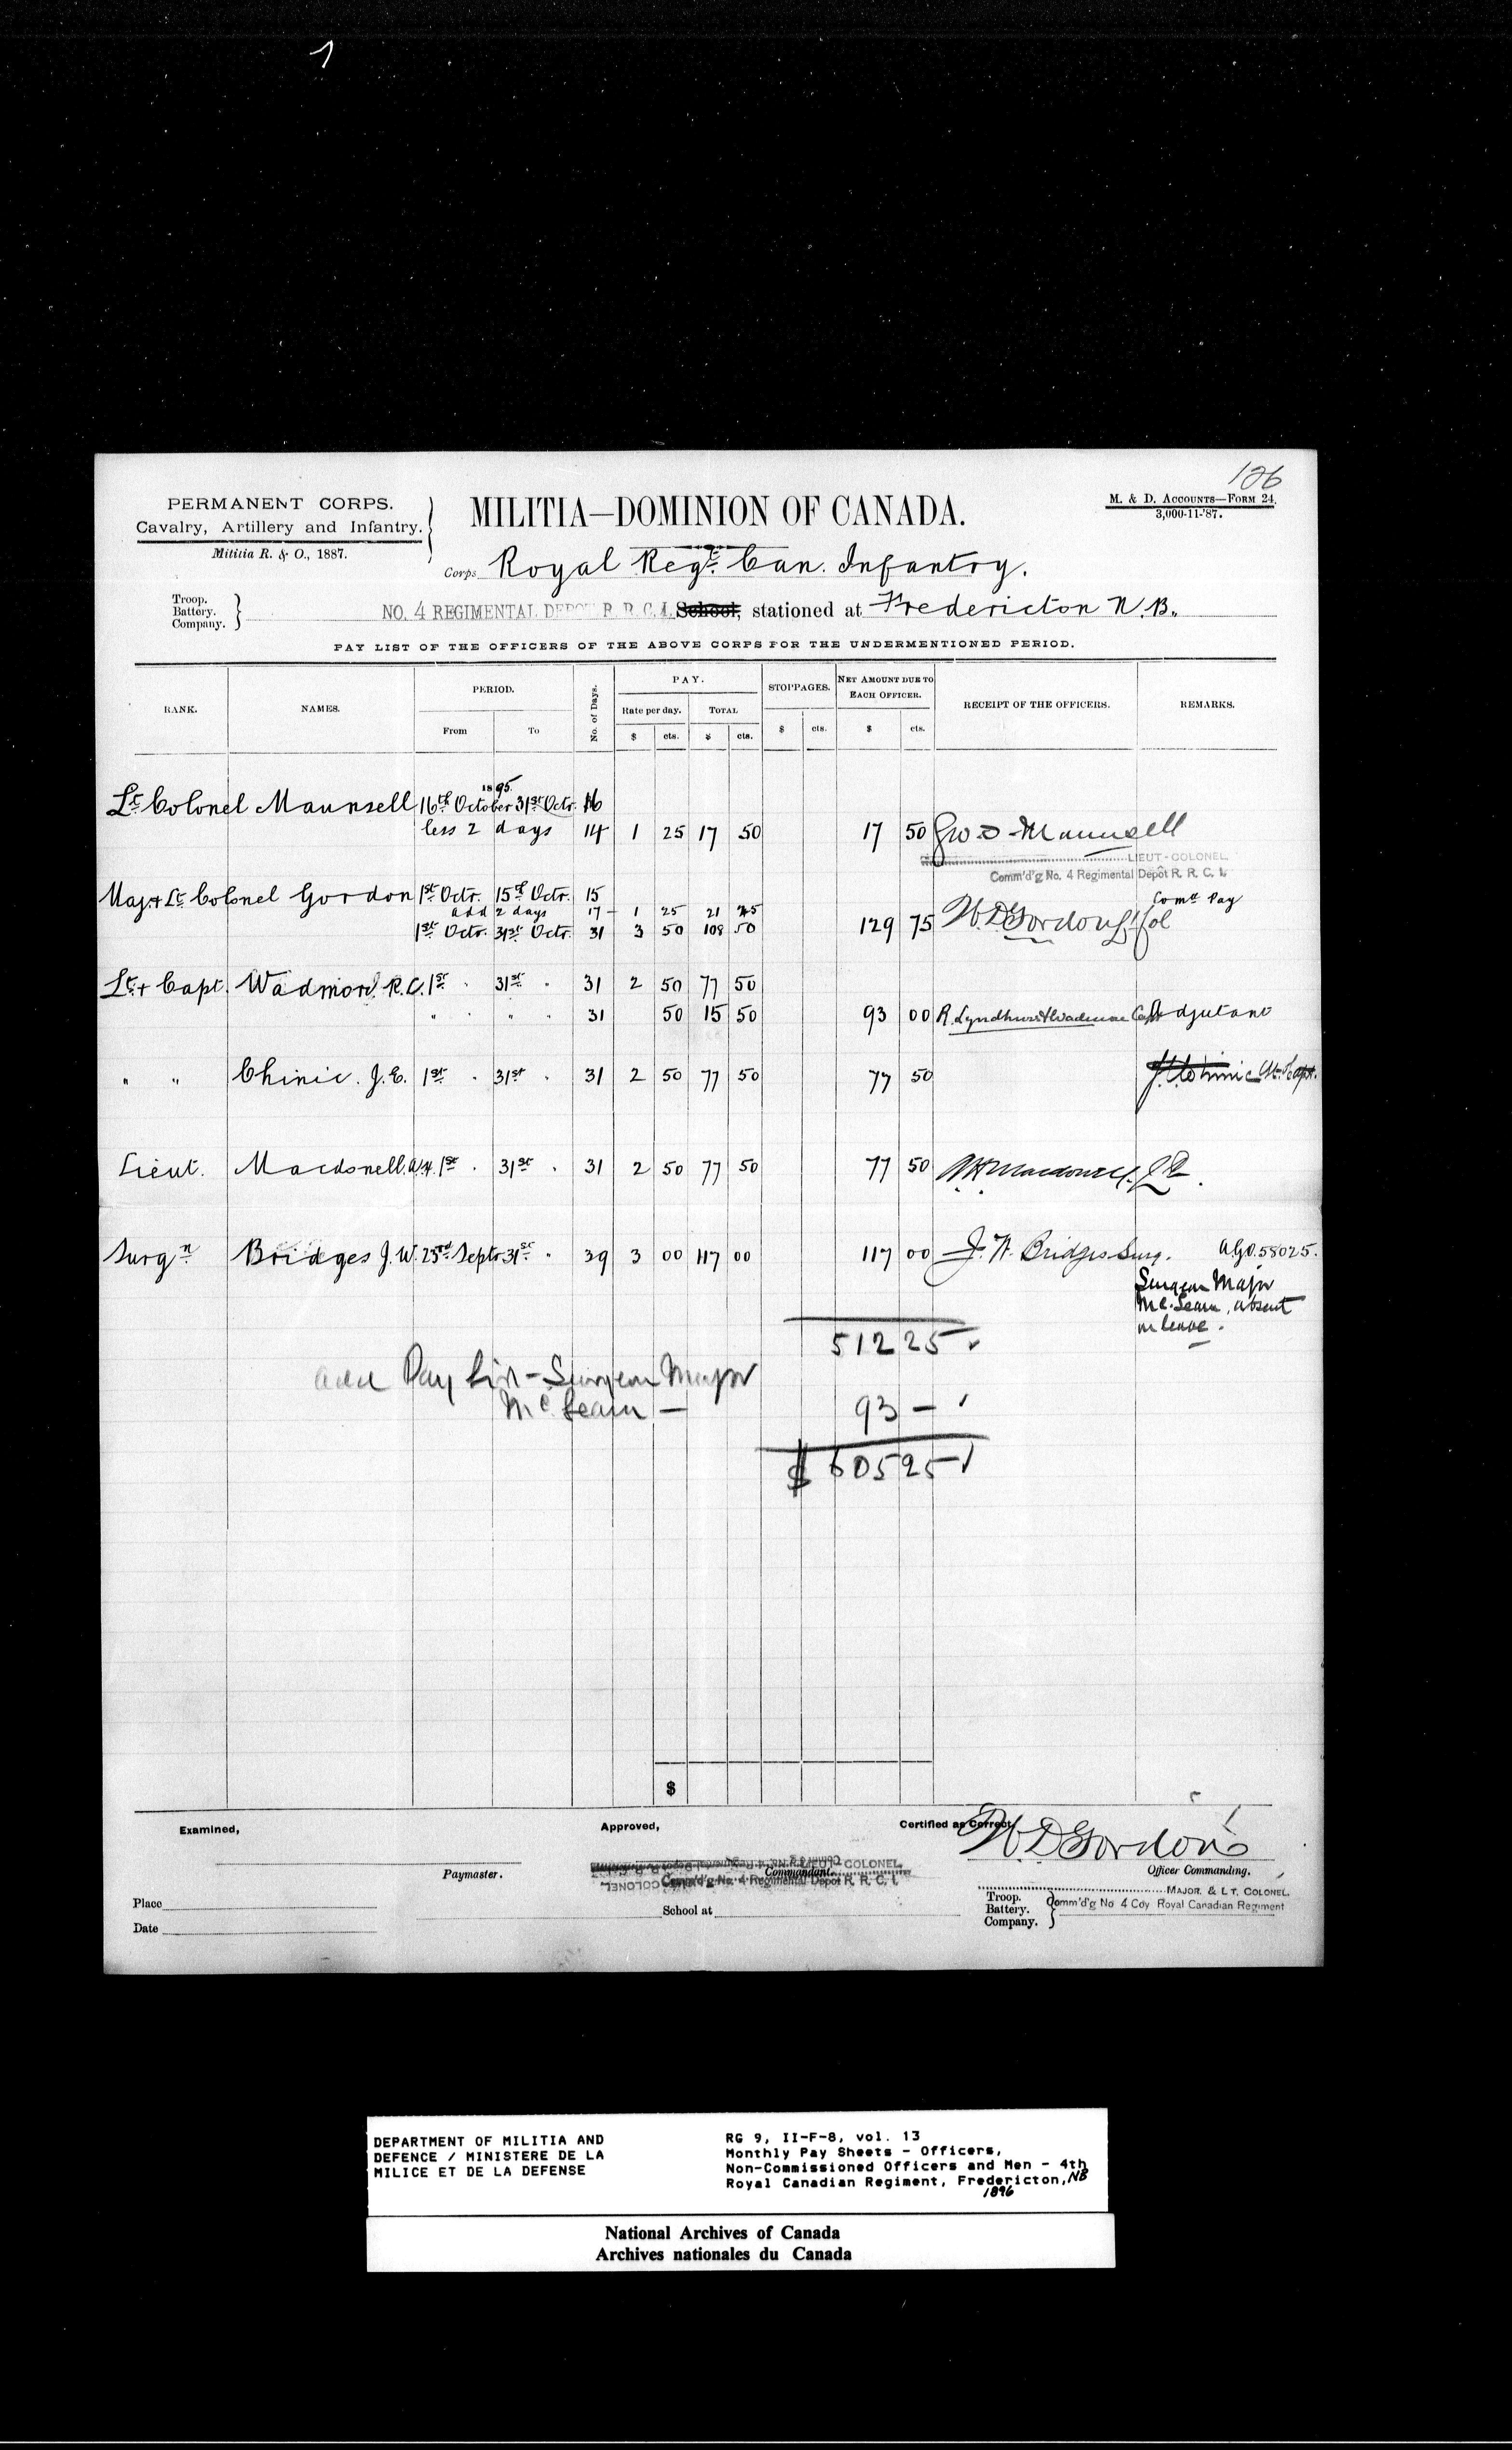 1
126
PERMANENT CORPS.
Cavalry, Artillery and Infantry.
Militia R. & O., 1887.
MILITIA—DOMINION OF CANADA.
M. & D. Accounts—Form 24.
3,000-11-'87.
Corps Royal Regt. Can. Infantry.
Troop.
Battery.
Company.
NO. 4 REGIMENTAL DEPOT R. R. C. I. School, stationed at Fredericton N.B.
PAY LIST OF THE OFFICERS OF THE ABOVE CORPS FOR THE UNDERMENTIONED PERIOD.
RANK. NAMES. PERIOD. From To No. of Days. PAY. Rate per day. $ cts. TOTAL $ cts. STOPPAGES. $ cts. NET AMOUNT DUE TO EACH OFFICER. $ cts. RECEIPT OF THE OFFICERS. REMARKS.
1895
Lt. Colonel Maunsell 16th October 31st Octr. 16
less 2 days 14 1 25 17 50 17 50 Geo D Maunsell
LIEUT-COLONEL
Comm'd'g No. 4 Regimental Depôt R. R. C. I.
Maj. & Lt. Colonel Gordon 1st Octr. 15th Octr. 15
add 2 days 17 - 1 25 21 25 Comd Pay
1st Octr. 31st Octr. 31 3 50 108 50 129 75 W.D. Gordon Lt Col
Lt. & Capt. Wadmore R.L. 1st " 31st " 31 2 50 77 50
" " " " 31 50 15 50 93 00 R. Lyndhurst Wadmore Capt Adjutant
" " Chinic. J.E. 1st " 31st " 31 2 50 77 50 77 50 Chinic Lt. Capt.
Lieut. Macdonell. A.H. 1st " 31st " 31 2 50 77 50 77 50 AH Macdonell. Lt.
Surgn Bridges J. W. 23rd Septr 31st " 39 3 00 117 00 117 00 J. W. Bridges Surg. A.G.O. 58025.
Surgeon Major
McLearn, absent
on leave.
512 25
add Pay List - Surgeon Major
McLearn — 93 —
$ 605 25
$
Examined,
Paymaster.
Place
Date
Approved,
COLONEL
Commandant.
Comm'd'g No. 4 Regimental Depot R. R. C. I.
School at
Certified as Correct,
W D Gordon
Officer Commanding.
MAJOR. & LT. COLONEL.
Troop.
Battery.
Company.
Comm'd'g No 4 Coy Royal Canadian Regiment
DEPARTMENT OF MILITIA AND
DEFENCE / MINISTERE DE LA
MILICE ET DE LA DEFENSE
RG 9, II-F-8, vol. 13
Monthly Pay Sheets - Officers,
Non-Commissioned Officers and Men - 4th
Royal Canadian Regiment, Fredericton, NB
1896
National Archives of Canada
Archives nationales du Canada